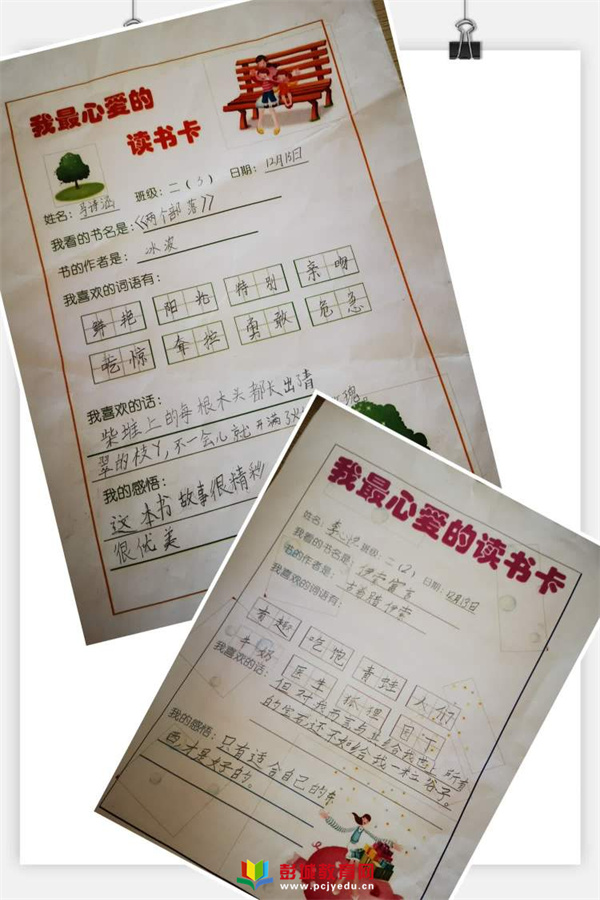 我最心爱的
读书卡
姓名：马诗涵 班级：二（3） 日期：12月15日
我看的书名是：《两个部落》
书的作者是：冰波
我喜欢的词语有：
鲜艳 阳光 特别 亲吻
吃惊 车控 勇敢 危急
我喜欢的话：
柴堆上的每根木头都长出清
翠的枝丫，不一会儿就开满了 瑰
我的感悟：
这本书故事很精彩
很优美
我最心爱的读书卡
姓名： 班级：二（2） 日期：12月13日
我看的书名是：伊索寓言
书的作者是：古希腊伊索
我喜欢的词语有：
有趣 吃饱 青蛙 大便
牛奶 医生 狐狸
我喜欢的话：但对我而言 给我 所有
的宝石，还不如给我一粒谷子。
我的感悟：只有适合自己的东
西，才是好的。
彭城教育网
www.pcjyedu.cn